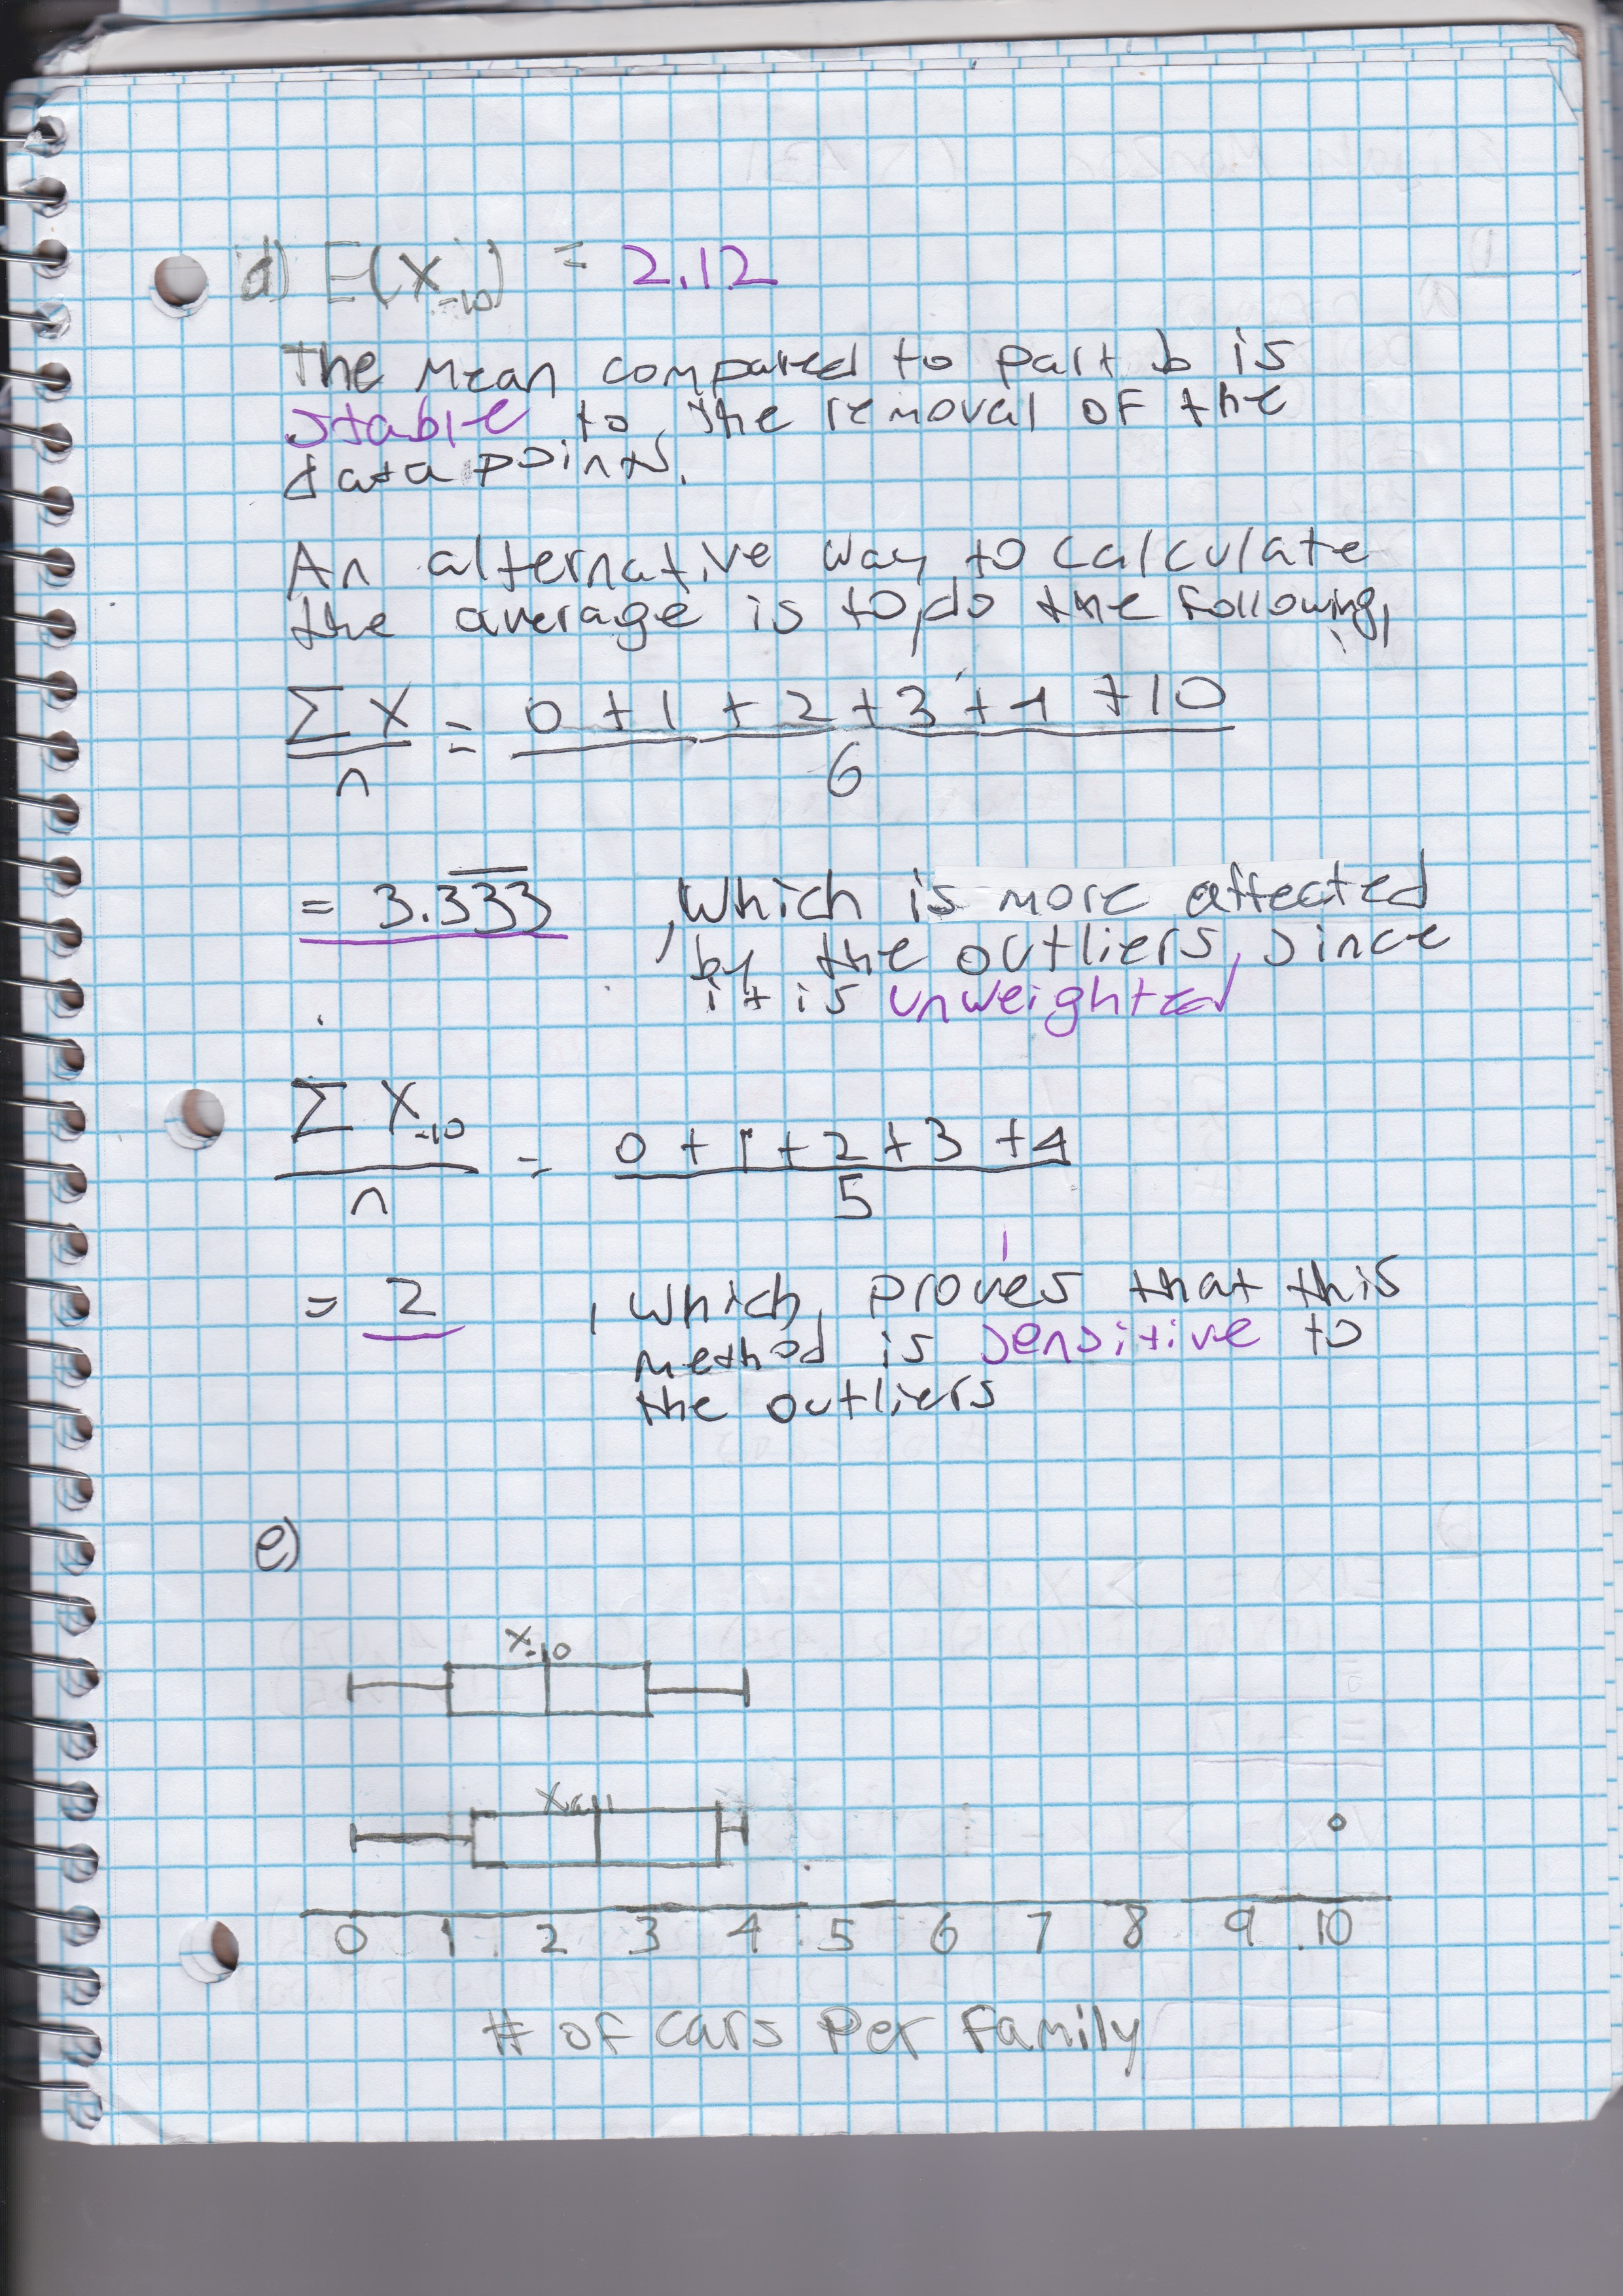 d) E(X₋₁₀) = 2.12
The mean compared to part b is
stable to the removal of the
data points.
An alternative way to calculate
the average is to do the following,
ΣX/n = 0 + 1 + 2 + 3 + 4 + 10 / 6
= 3.333̅, which is more affected
by the outliers, since
it is unweighted
ΣX₋₁₀/n = 0 + 1 + 2 + 3 + 4 / 5
= 2, which, proves that this
method is sensitive to
the outliers
e)
X₋₁₀
Xall
0 1 2 3 4 5 6 7 8 9 10
# of cars per family